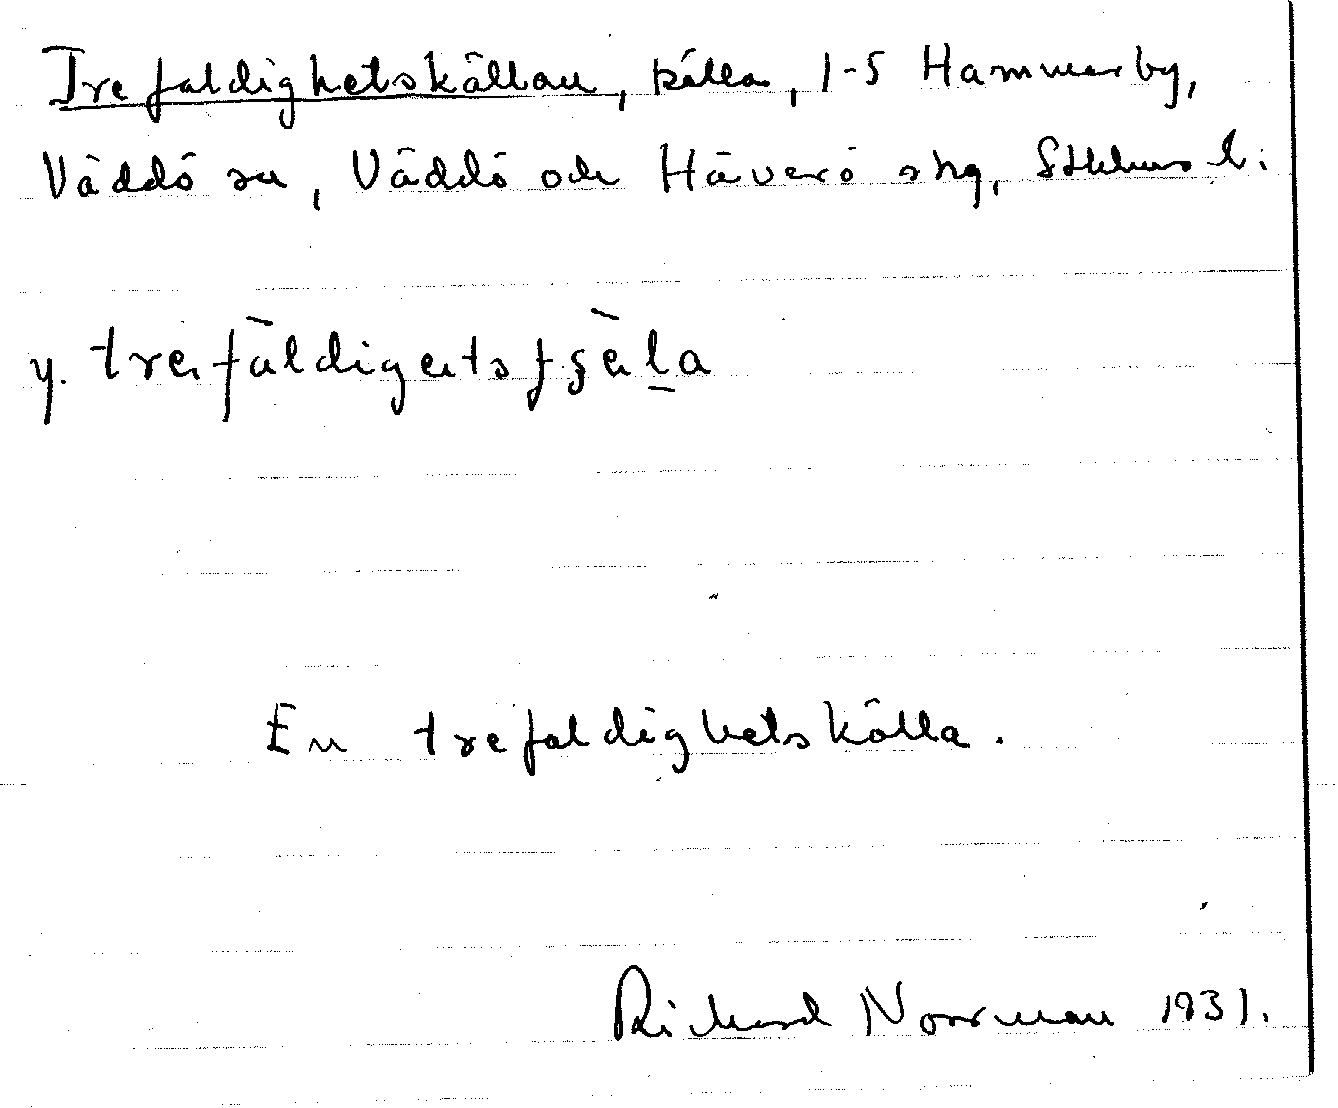 Trefaldighetskällan, källa, 1-5 Hammarby,
Väddö sn, Väddö och Häverö skg, Sthlms l.
y. trefàldigetsʃɛ̀la
En trefaldighetskälla.
Richard Norrman 1931.